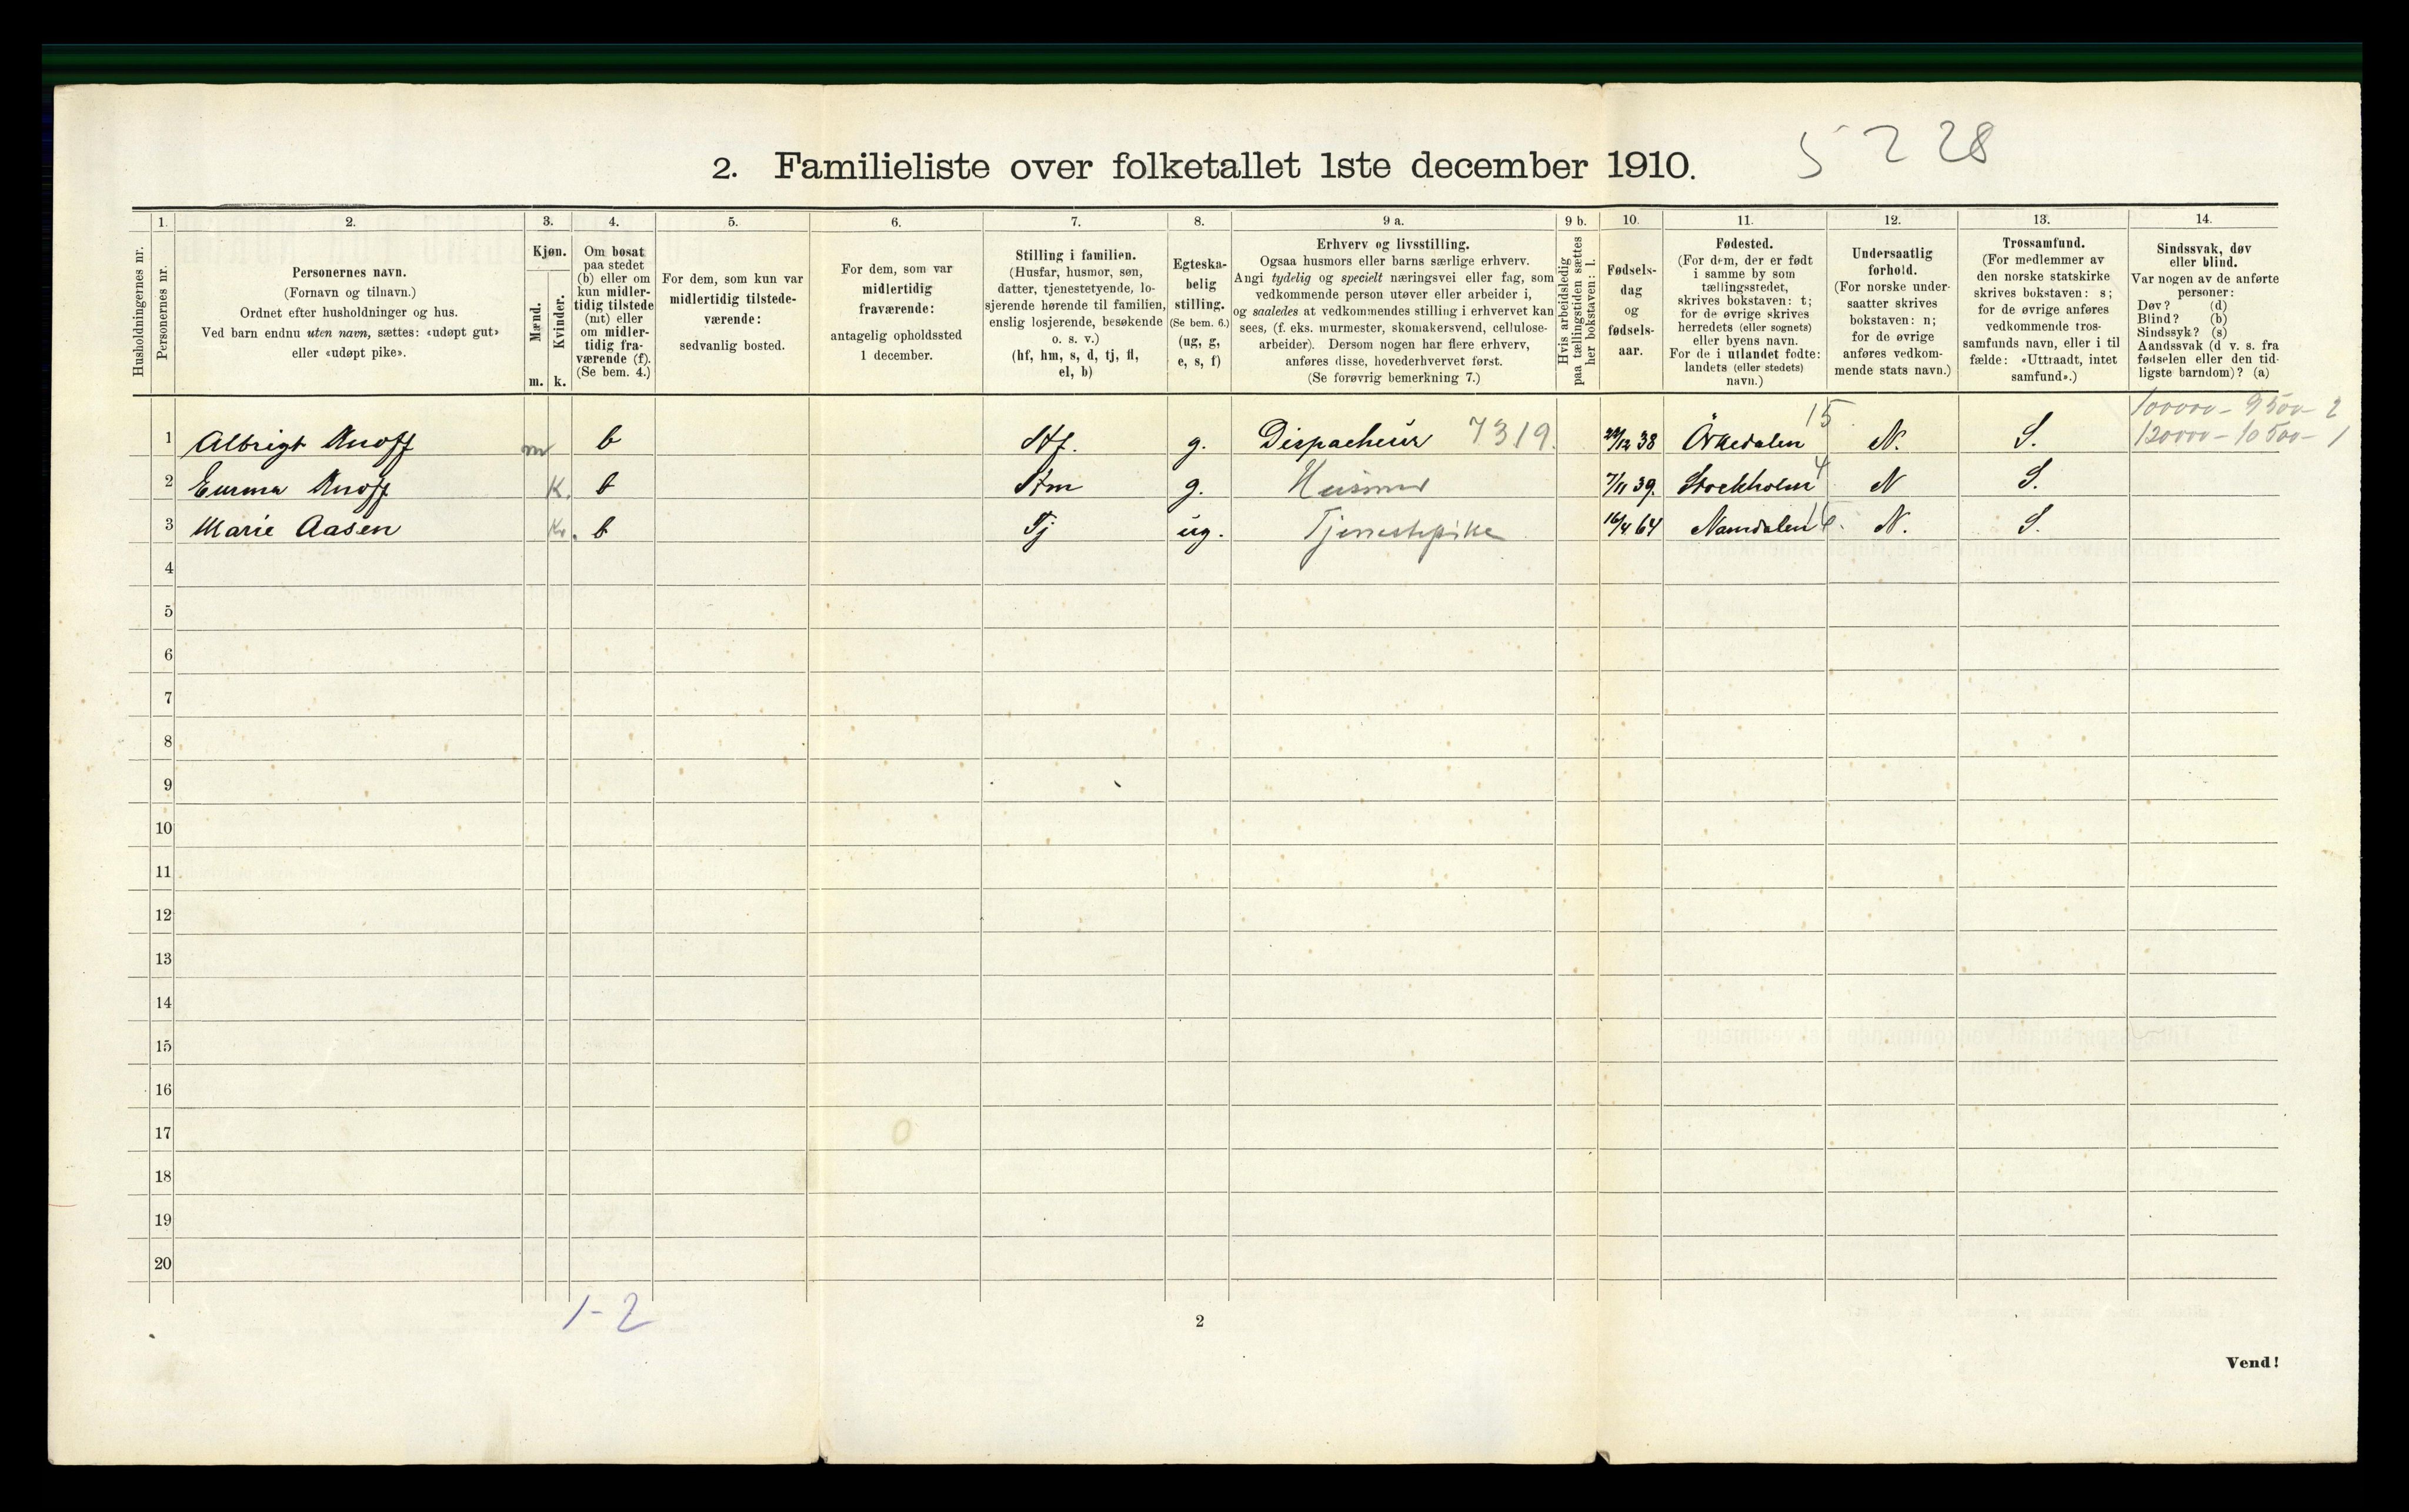 5 2 28
2. Familieliste over folketallet 1ste december 1910.
1. 2. 3. 4. 5. 6. 7. 8. 9 a. 9 b. 10. 11. 12. 13. 14.
Husholdningernes nr.
Personernes nr.
Personernes navn.
(Fornavn og tilnavn.)
Ordnet efter husholdninger og hus.
Ved barn endnu uten navn, sættes: «udøpt gut»
eller «udøpt pike».
Kjøn.
Mænd.
Kvinder.
m. k.
Om bosat
paa stedet
(b) eller om
kun midler-
tidig tilstede
(mt) eller
om midler-
tidig fra-
værende (f).
(Se bem. 4.)
For dem, som kun var
midlertidig tilstede-
værende:
sedvanlig bosted.
For dem, som var
midlertidig
fraværende:
antagelig opholdssted
1 december.
Stilling i familien.
(Husfar, husmor, søn,
datter, tjenestetyende, lo-
sjerende hørende til familien,
enslig losjerende, besøkende
o. s. v.)
(hf, hm, s, d, tj, fl,
el, b)
Egteska-
belig
stilling.
(Se bem. 6.)
(ug, g,
e, s, f)
Erhverv og livsstilling.
Ogsaa husmors eller barns særlige erhverv.
Angi tydelig og specielt næringsvei eller fag, som
vedkommende person utøver eller arbeider i,
og saaledes at vedkommendes stilling i erhvervet kan
sees, (f. eks. murmester, skomakersvend, cellulose-
arbeider). Dersom nogen har flere erhverv,
anføres disse, hovederhvervet først.
(Se forøvrig bemerkning 7.)
Hvis arbeidsledig
paa tællingstiden sættes
her bokstaven: l.
Fødsels-
dag
og
fødsels-
aar.
Fødested.
(For dem, der er født
i samme by som
tællingsstedet,
skrives bokstaven: t;
for de øvrige skrives
herredets (eller sognets)
eller byens navn.
For de i utlandet fødte:
landets (eller stedets)
navn.)
Undersaatlig
forhold.
(For norske under-
saatter skrives
bokstaven: n;
for de øvrige
anføres vedkom-
mende stats navn.)
Trossamfund.
(For medlemmer av
den norske statskirke
skrives bokstaven: s;
for de øvrige anføres
vedkommende tros-
samfunds navn, eller i til
fælde: «Uttraadt, intet
samfund».)
Sindssvak, døv
eller blind.
Var nogen av de anførte
personer:
Døv? (d)
Blind? (b)
Sindssyk? (s)
Aandssvak (d v. s. fra
fødselen eller den tid-
ligste barndom)? (a)
15 100000 - 9500 - 2
1 Albrigt Knoff m b Hf. g. Dispacheur 7319. 22/12 38 Örkedalen N. S. 120000 - 10500 - 1
2 Emma Knoff K. b Hm g. Husmor 7/11 39. Stockholm 4 N S.
3 Marie Aasen K. b Tj ug. Tjenestepike 16/4 64 Namdalen 16. N. S.
4
5
6
7
8
9
10
11
12
13
14
15
16
17
18
19
20
1-2
2
Vend!